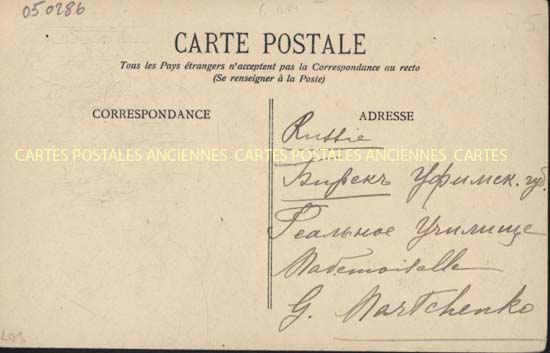 050286
CARTE POSTALE
Tous les Pays étrangers n'acceptent pas la Correspondance au recto
(Se renseigner à la Poste)
CORRESPONDANCE
ADRESSE
Russie
CARTES POSTALES ANCIENNES CARTES POSTALES ANCIENNES CARTES
Бирскъ Уфимск. губ.
Реальное Училище
Mademoiselle
G. Martchenko